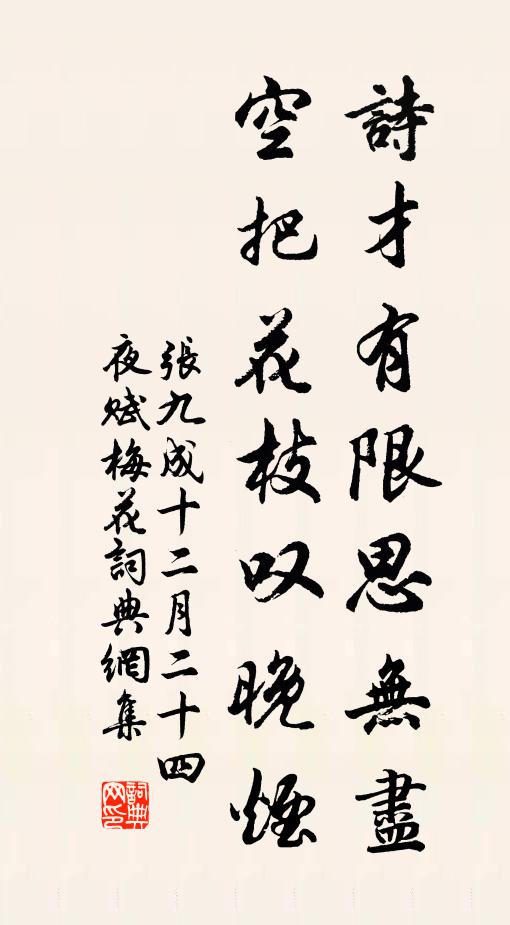 詩才有限思無盡
空把花枝叹晚煙
張九成十二月二十四
夜赋梅花詞典網集
詞典
网印